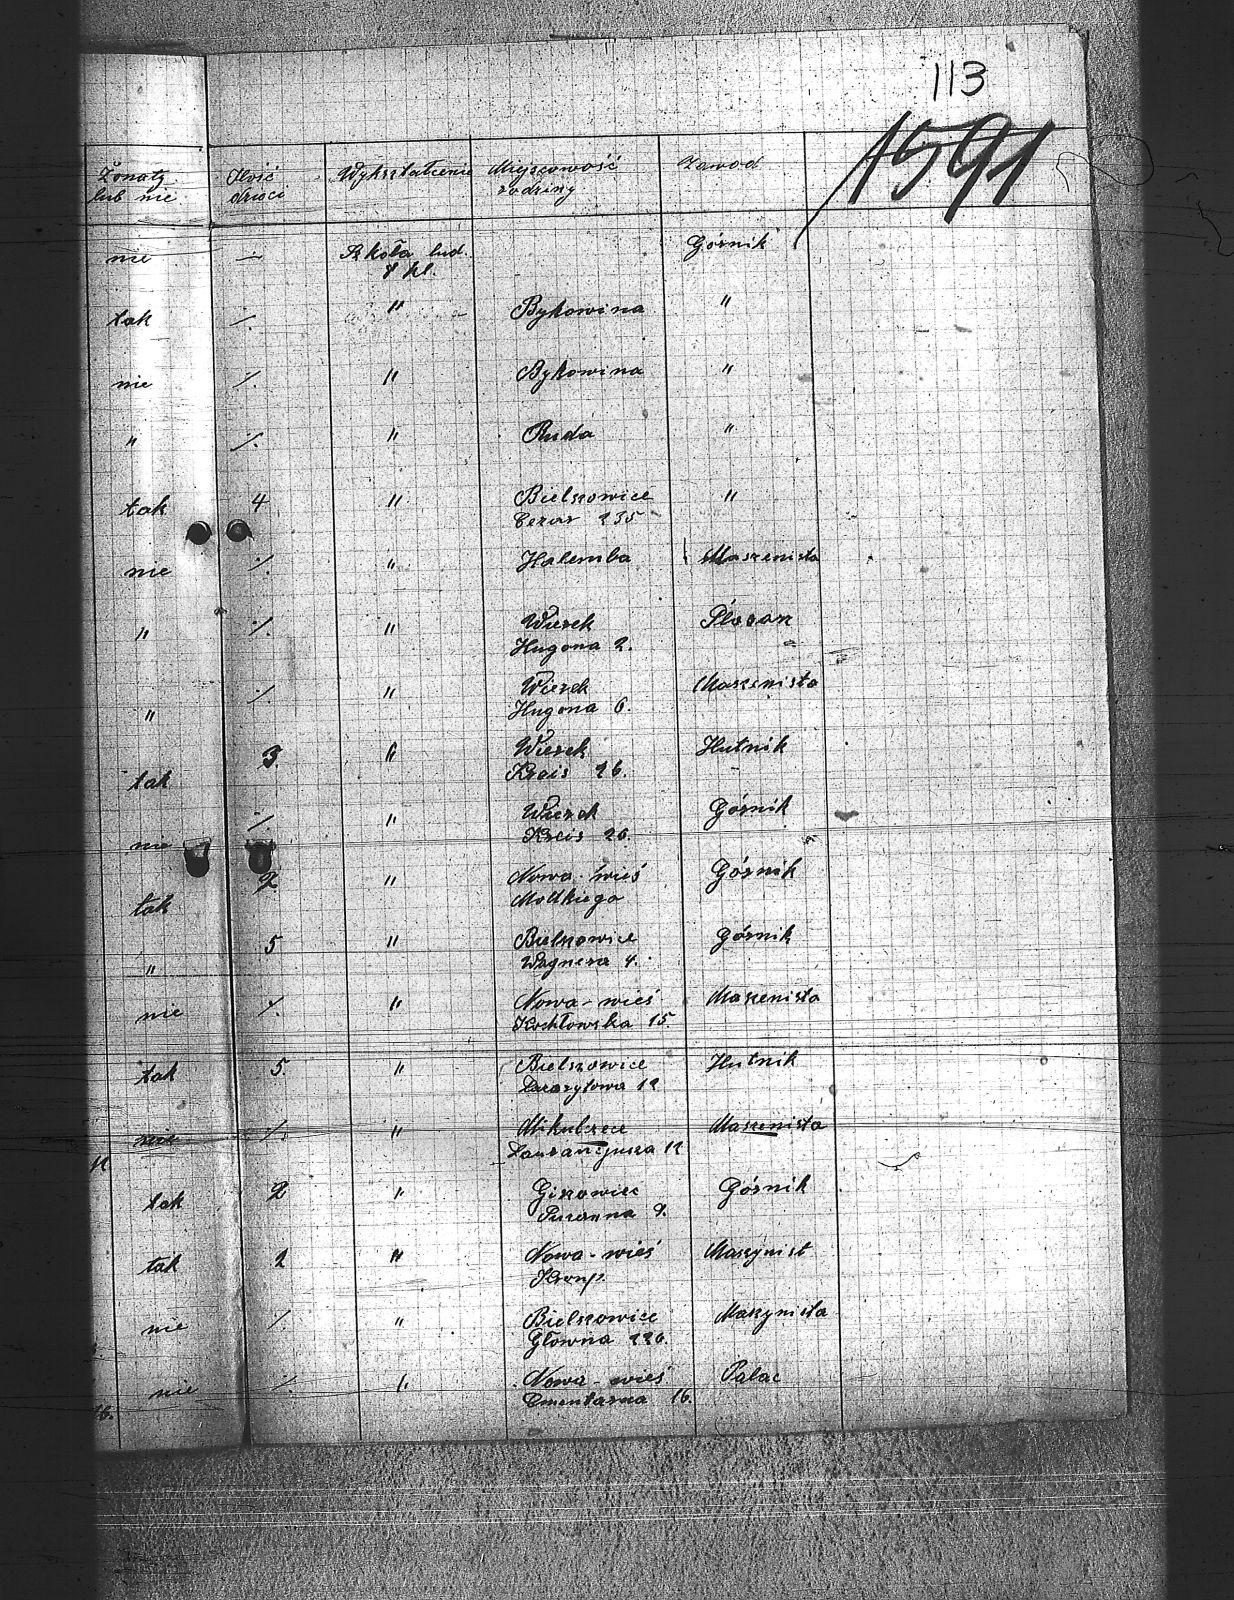 113
1591
Żonaty lub nie | Ilość dzieci | Wykształcenie | Miejscowość rodziny | Zawód
nie | ·/· | Szkoła lud. 8 kl. | | Górnik
tak | ·/· | " | Bykowina | "
nie | ·/· | " | Bykowina | "
" | ·/· | " | Ruda | "
tak | 4 | " | Bielszowice | "
Cezar 235
nie | ·/· | " | Halemba | Maszenista
" | ·/· | " | Wirek | Ślosarz
Hugona 2.
" | ·/· | " | Wirek | Maszenista
Hugona 6.
tak | 3. | " | Wirek | Hutnik
Kreis 26.
nie | ·/· | " | Wirek | Górnik
Kreis 26.
tak | 2 | " | Nowa-wieś | Górnik
Moltkiego
" | 5 | " | Bielszowice | Górnik
Wagnera 4.
nie | ·/· | " | Nowa-wieś | Maszenista
Kochłowska 15.
tak | 5. | " | Bielszowice | Hutnik
12
nie | ·/· | " | Mikulczece | Maszenista
12
tak | 2 | " | Giszowiec | Górnik
9.
tak | 2 | " | Nowa-wieś | Maszynist
Krup.
nie | ·/· | " | Bielszowice | Maszynista
Głowna 226.
nie | ·/· | " | Nowa-wieś | Palac
Cmentarna 16.